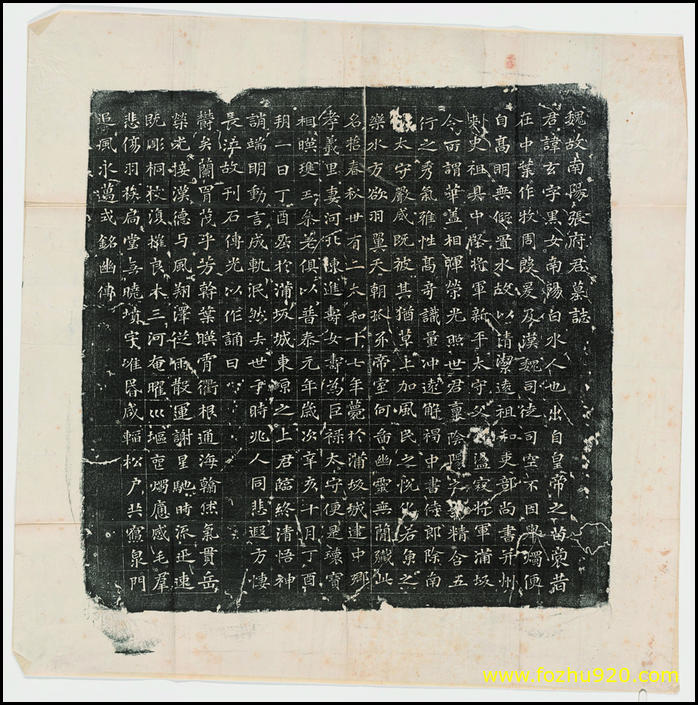 魏故南陽張府君墓誌
君諱玄字黑女南陽白水人也出自皇帝之苗裔昔
在中葉作牧周殷爰及漢魏司徒司空不因舉燭便
自高明無假置水故以清潔遠祖和吏部尚書并州
刺史祖具中堅將軍新平太守父盪寇將軍蒲坂
令所謂華蓋相暉榮光照世君稟陰陽之精含五
行之秀氣雅性高奇識量沖遠解褐中書侍郎除南
太守嚴威既被其猶草上加風民之悅若魚之
樂水方欲羽翼天朝抓牙帝室何啚幽靈無簡殲此
名哲春秋卅有二太和十七年薨於蒲坂城建中鄉
孝義里妻河北陳進壽女壽為巨祿太守便是瑰寶
相暎瓊玉參差俱以普泰元年歲次辛亥十月丁酉
朔一日丁酉葬於蒲坂城東原之上君臨終清悟神
誚端明動言成軌泯然去世于時兆人同悲遐方悽
長泣故刊石傳光以作誦曰
鬱矣蘭胄茂乎芳幹葉暎霄衢根通海翰休氣貫岳
榮光接漢德与風翔澤從雨散運謝星馳時流迅速
既彫桐枝復摧良木三河奄曜巛塸堙燭痛感毛群
悲傷羽族扃堂無曉墳宇唯昏咸輴松戶共寢泉門
追風永邁式銘幽傳
www.fozhu920.com